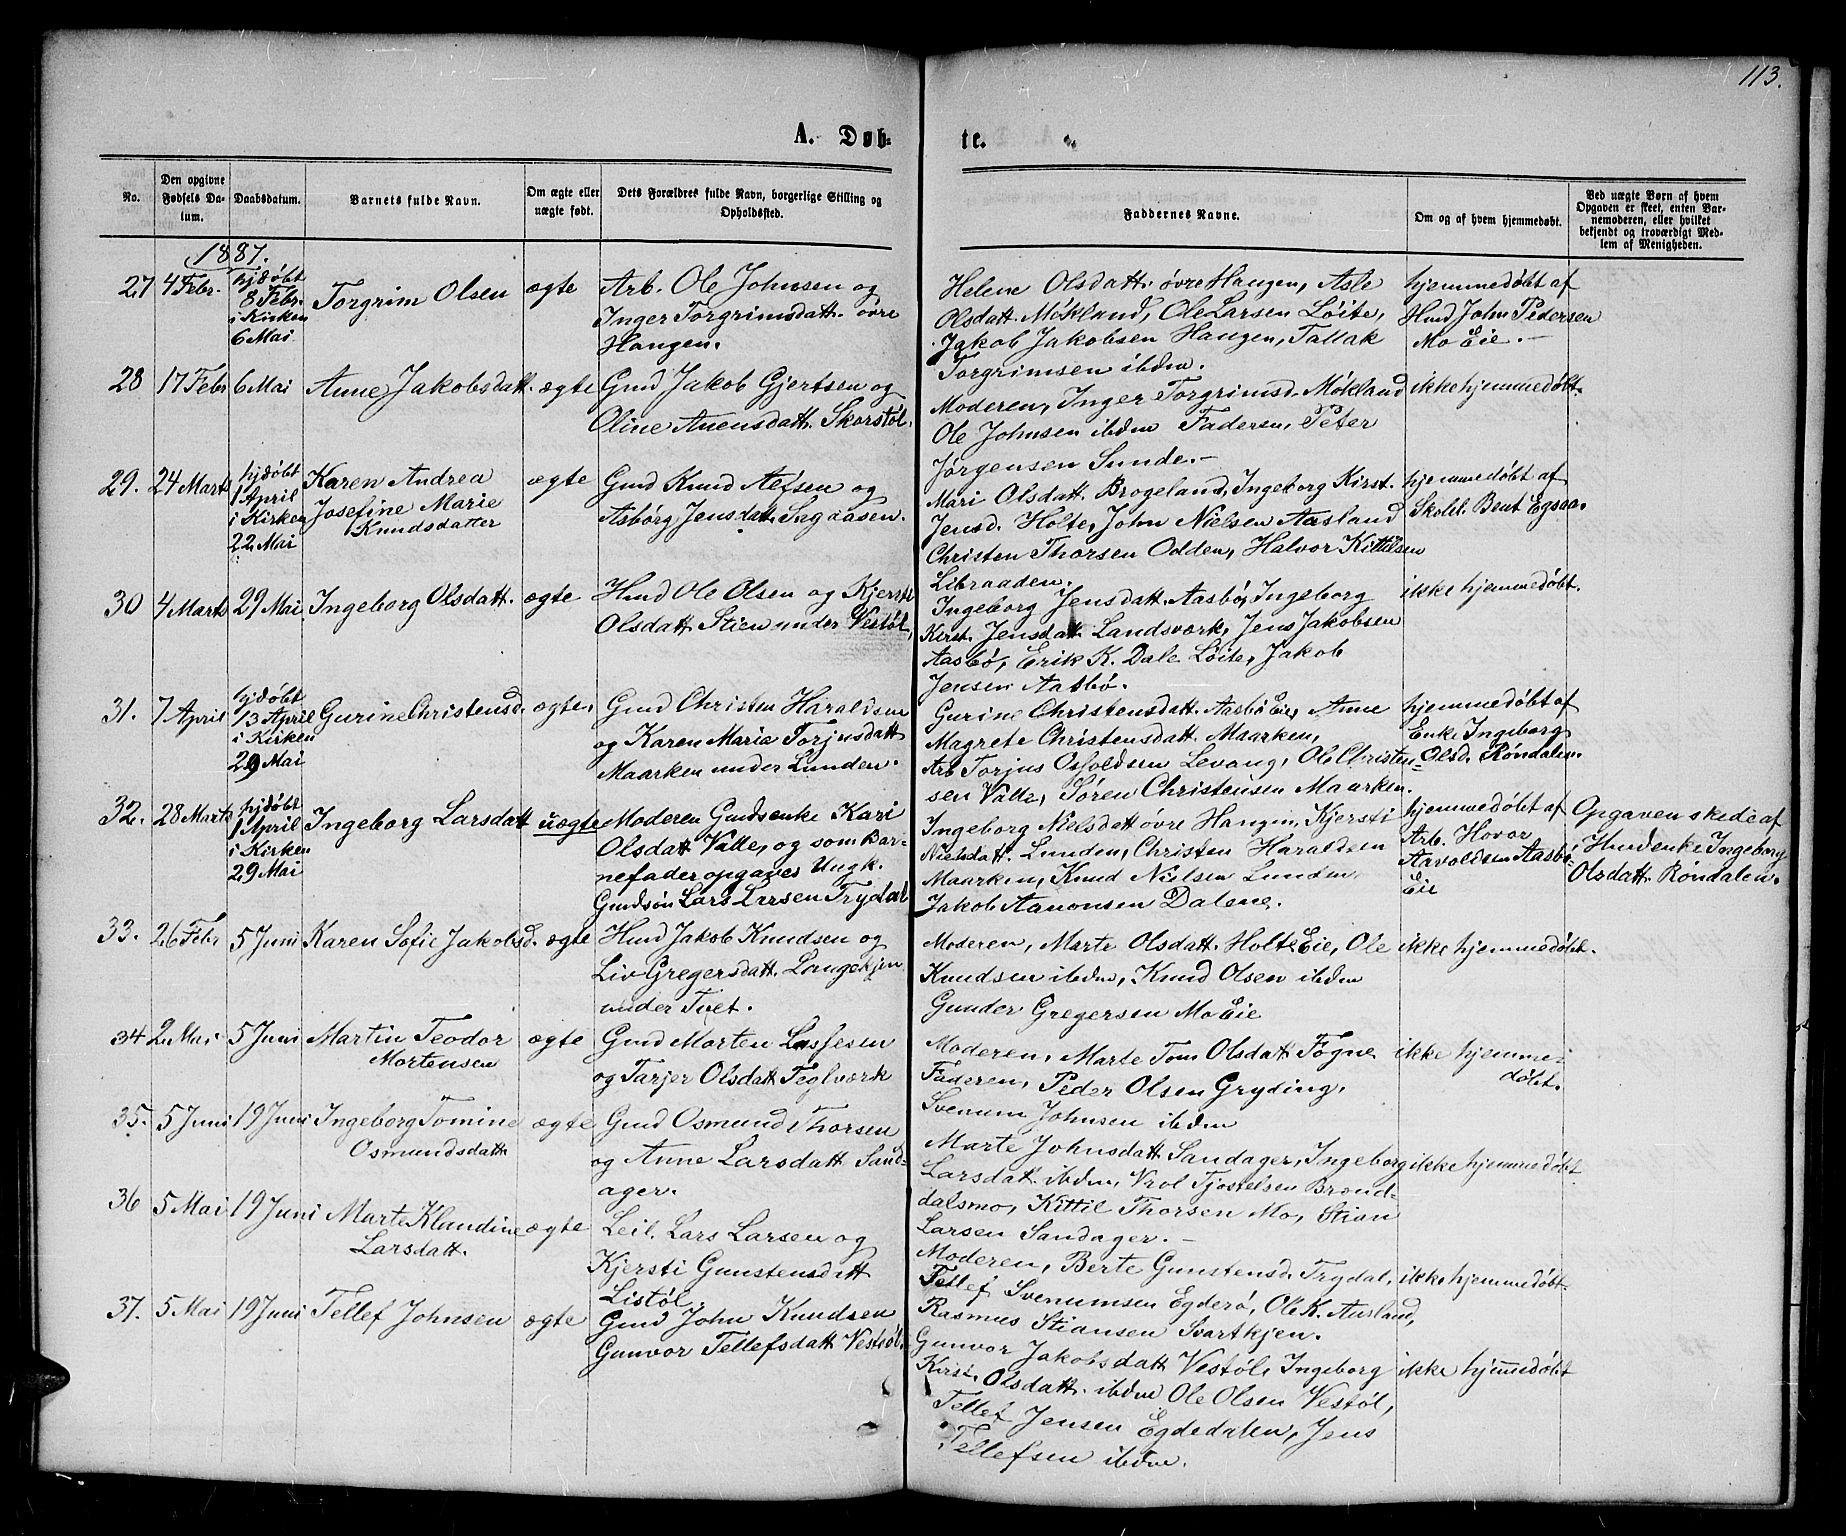 113.
A. Døb-
te.
No.
Den opgivne Fødsels Datum.
Daabsdatum.
Barnets fulde Navn.
Om ægte eller uægte født.
Dets Forældres fulde Navn, borgerlige Stilling og Opholdssted.
Faddernes Navne.
Om og af hvem hjemmedøbt.
Ved uægte Børn af hvem Opgaven er skeet, enten Barnemoderen, eller hvilket bekjendt og troværdigt Medlem af Menigheden.
1887.
27 4 Febr. hjdøbt
8 Febr.
i Kirken
6 Mai
Torgrim Olsen ægte
Arb. Ole Johnsen og
Inger Torgrimsdatt. øvre
Haugen.
Helene Olsdatt. øvre Haugen, Asle
Olsdatt. Møkland, Ole Larsen Løite,
Jakob Jakobsen Haugen, Tallak
Torgrimsen ibdm.
hjemmedøbt af
Hmd John Pedersen
Mo Eie.
28 17 Febr 6 Mai Anne Jakobsdatt. ægte
Gmd Jakob Gjertsen og
Oline Auensdatt. Skorstøl.
Moderen, Inger Torgrimsd. Møkland
Ole Johnsen ibdm Faderen, Peter
Jørgensen Sunde.
ikke hjemmedøbt.
29. 24 Marts hjdøbt
1 April
i Kirken
22 Mai
Karen Andrea
Josefine Marie
Knudsdatter
ægte
Gmd Knud Aesen og
Asbørg Jensdatt. Sagaasen.
Mari Olsdatt. Brogeland, Ingeborg Kirst.
Jensd. Holte, John Nielsen Aasland
Christen Thorsen Odden, Halvor Kittilsen
Libraaden.
hjemmedøbt af
Skoldl. Bent Egsaa.
30 4 Marts 29 Mai Ingeborg Olsdatt. ægte
Hmd Ole Olsen og Kjersti
Olsdatt Stien under Vestøl,
Ingeborg Jensdatt. Aasbø, Ingeborg
Kirst. Jensdatt. Landsværk, Jens Jakobsen
Aasbø, Erik K. Dale Løite, Jakob
Jensen Aasbø.
ikke hjemmedøbt.
31. 7 April hjdøbt
13 April
i Kirken
29 Mai
Gurine Christensd. ægte.
Gmd Christen Haraldsen
og Karen Maria Torjusdatt
Maarken under Lunden.
Gurine Christensdatt. Aasbø Eie, Anne
Magrete Christensdatt. Maarken,
Arb Torjus Osfoldsen Levang, Ole Christen-
sen Valle, Søren Christensen Maarken.
hjemmedøbt af
Enke Ingeborg
Olsd. Røndalen.
32. 28 Marts hjdøbt
1 April
i Kirken
29 Mai
Ingeborg Larsdatt uægte
Moderen Gmdsenke Kari
Olsdatt Valle, og som Bar-
nefader opgaves Ungk.
Gmdsøn Lars Larsen Trydal
Ingeborg Nielsdatt øvre Haugen, Kjersti
Nielsdatt. Lunden, Christen Haraldsen
Maarken, Knud Nielsen Lunden
Jakob Aanonsen Dalene.
hjemmedøbt af
Arb. Hovor
Aavoldsen Aasbø
Eie
Opgaven skede af
Hmdenke Ingeborg
Olsdatt. Røndalen.
33. 26 Febr 5 Juni Karen Sofie Jakobsd. ægte
Hmd Jakob Knudsen og
Liv Gregersdatt. Langekjen
under Tvet.
Moderen, Marte Olsdatt. Holte Eie, Ole
Knudsen ibdm, Knud Olsen ibdm
Gunder Gregersen Mo Eie
ikke hjemmedøbt.
34 2 Mai 5 Juni Martin Teodor
Mortensen
ægte
Gmd Morten Lassesen
og Tarjer Olsdatt Teglværk
Moderen, Marte Tom Olsdatt Fogne
Faderen, Peder Olsen Gryding,
Svenum Johnsen ibdm
ikke hjemme-
døbt.
35. 5 Juni 19 Juni Ingeborg Tomine
Osmundsdatt
ægte
Gmd Osmund Thorsen
og Anne Larsdatt Sand-
ager.
Marte Johnsdatt Sandager, Ingeborg
Larsdatt. ibdm, Vrol Tjostelsen Brønd-
dalsmo, Kittil Thorsen Mo, Stian
Larsen Sandager.
ikke hjemmedøbt
36 5 Mai 19 Juni Marte Klaudine
Larsdatt.
ægte
Leil. Lars Larsen og
Kjersti Gunstensdatt
Listøl.
Moderen, Berte Gunstensd. Trydal,
Tellef Svenumsen Egderø, Ole K. Ausland,
Rasmus Stiansen Svartkjen.
ikke hjemmedøbt.
37. 5 Mai 19 Juni Tellef Johnsen ægte
Gmd John Knudsen
Gunvor Tellefsdatt Vestøl.
Gunvor Jakobsdatt Vestøl, Ingeborg
Kirst. Olsdatt. ibdm Ole Olsen Vestøl,
Tellef Jensen Egdedalen, Jens
Tellefsen ibdm.
ikke hjemmedøbt